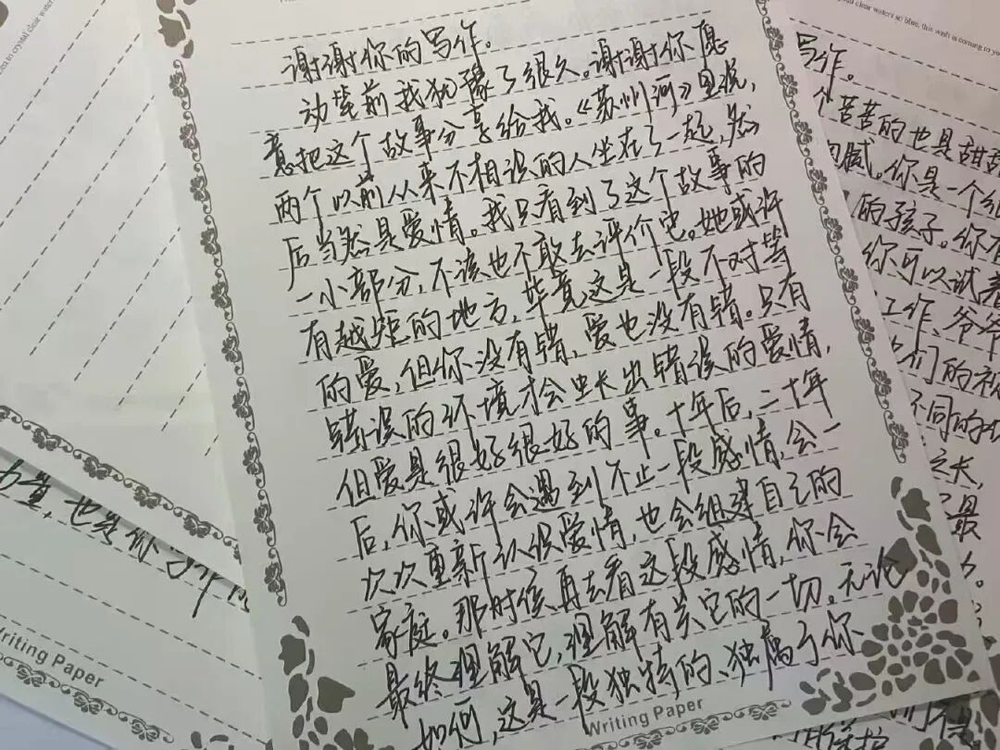 谢谢你的写作。
动笔前我犹豫了很久。谢谢你愿
意把这个故事分享给我。《苏州河》里说，
两个以前从来不相识的人坐在了一起，然
后当然是爱情。我只看到了这个故事的
一小部分，不该也不敢去评价它。她或许
有越矩的地方，毕竟这是一段不对等
的爱，但你没有错，爱也没有错。只有
错误的环境才会长出错误的爱情，
但爱是很好很好的事。十年后，二十年
后，你或许会遇到不止一段感情，会一
次次重新认识爱情，也会组建自己的
家庭。那时候再去看这段感情，你会
最终理解它，理解有关它的一切。无论
如何，这是一段独特的、独属于你
Writing Paper
写作。
个苦苦的也是甜甜
细腻。你是一个
的孩子。你有
你可以试着
工作、爷爷
们的祝
不同的
之长，
最
也是你
Writing Paper